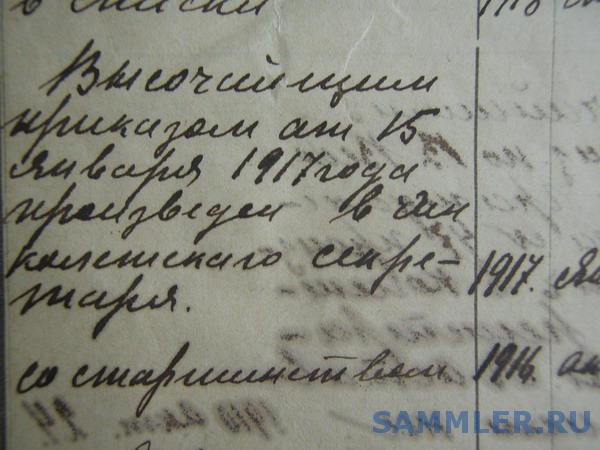 в списки 1916
Высочайшим
приказом от 15
января 1917 года
произведен в чин
колетскаго секре- 1917. Ян
таря.
со старшинством 1916. ок
SAMMLER.RU